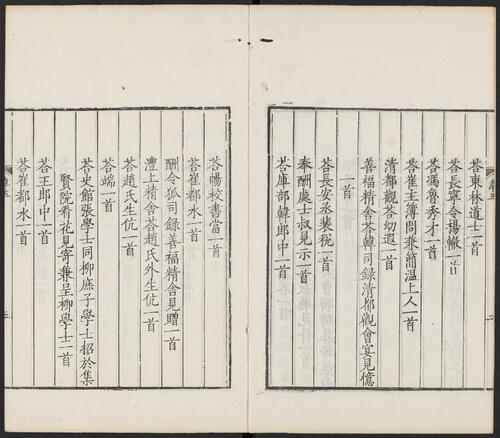 荅東林道士一首
荅長寧令楊轍一首
荅馮魯秀才一首
荅崔主簿問兼簡溫上人一首
清都觀荅幼遐一首
善福精舍荅韓司錄清都觀會宴見憶
一首
荅長安丞裴稅一首
奉酬處士叔見示一首
荅庫部韓郎中一首
荅暢校書當一首
荅崔都水一首
酬令狐司錄善福精舍見贈一首
灃上精舍荅趙氏外生伉一首
荅趙氏生伉一首
荅端一首
荅史館張學士同柳庶子學士招於集
賢院看花見寄兼呈柳學士一首
荅王郎中一首
荅崔都水一首
卷五
三